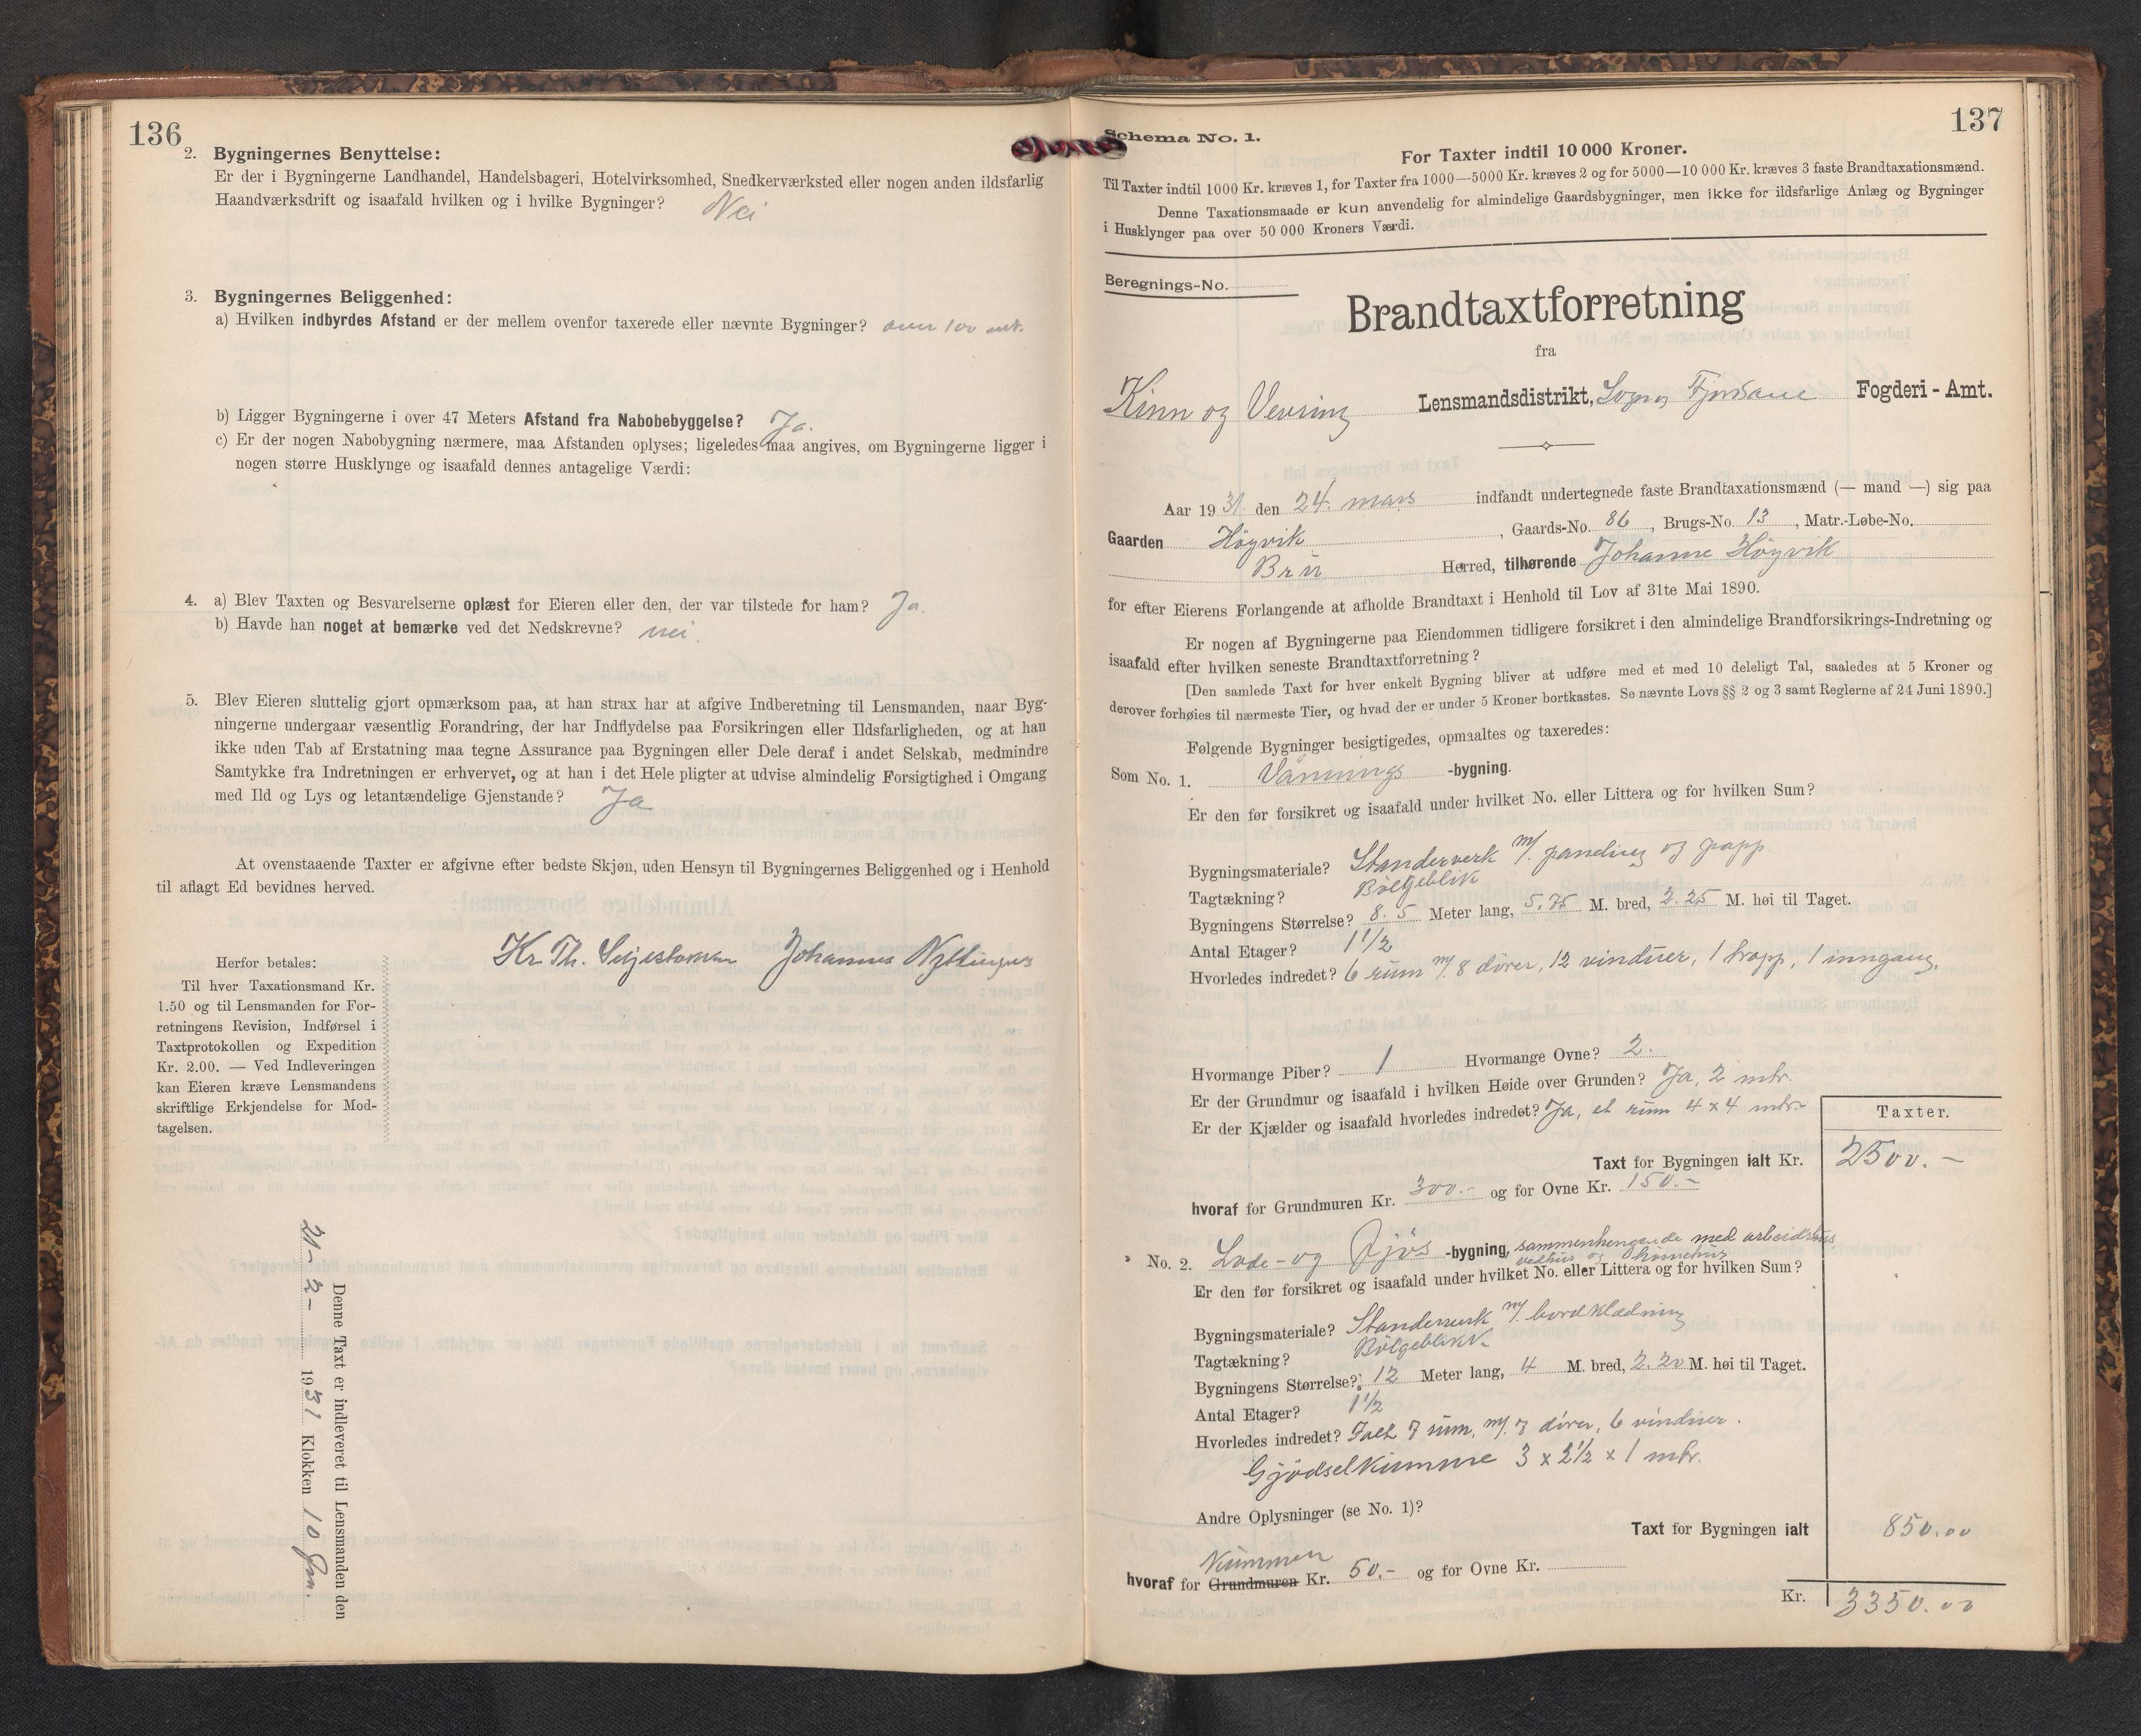 136
2. Bygningernes Benyttelse:
Er der i Bygningerne Landhandel, Handelsbageri, Hotelvirksomhed, Snedkerværksted eller nogen anden ildsfarlig
Haandværksdrift og isaafald hvilken og i hvilke Bygninger? Nei
3. Bygningernes Beliggenhed:
a) Hvilken indbyrdes Afstand er der mellem ovenfor taxerede eller nævnte Bygninger? over 100 mtr.
b) Ligger Bygningerne i over 47 Meters Afstand fra Nabobebyggelse? Ja.
c) Er der nogen Nabobygning nærmere, maa Afstanden oplyses; ligeledes maa angives, om Bygningerne ligger i
nogen større Husklynge og isaafald dennes antagelige Værdi:
4. a) Blev Taxten og Besvarelserne oplæst for Eieren eller den, der var tilstede for ham? Ja.
b) Havde han noget at bemærke ved det Nedskrevne? nei.
5. Blev Eieren sluttelig gjort opmærksom paa, at han strax har at afgive Indberetning til Lensmanden, naar Byg-
ningerne undergaar væsentlig Forandring, der har Indflydelse paa Forsikringen eller Ildsfarligheden, og at han
ikke uden Tab af Erstatning maa tegne Assurance paa Bygningen eller Dele deraf i andet Selskab, medmindre
Samtykke fra Indretningen er erhvervet, og at han i det Hele pligter at udvise almindelig Forsigtighed i Omgang
med Ild og Lys og letantændelige Gjenstande? Ja
At ovenstaaende Taxter er afgivne efter bedste Skjøn, uden Hensyn til Bygningernes Beliggenhed og i Henhold
til aflagt Ed bevidnes herved.
Kr. Th. Johannes
Herfor betales:
Til hver Taxationsmand Kr.
1.50 og til Lensmanden for For-
retningens Revision, Indførsel i
Taxtprotokollen og Expedition
Kr. 2.00. — Ved Indleveringen
kan Eieren kræve Lensmandens
skriftlige Erkjendelse for Mod-
tagelsen.
Denne Taxt er indleveret til Lensmanden den
21-2- 1931 Klokken 10 fm.
137
Schema No. 1.
For Taxter indtil 10 000 Kroner.
Til Taxter indtil 1000 Kr. kræves 1, for Taxter fra 1000—5000 Kr. kræves 2 og for 5000—10 000 Kr. kræves 3 faste Brandtaxationsmænd.
Denne Taxationsmaade er kun anvendelig for almindelige Gaardsbygninger, men ikke for ildsfarlige Anlæg og Bygninger
i Husklynger paa over 50 000 Kroners Værdi.
Beregnings-No.
Brandtaxtforretning
fra
Kinn og Vevring Lensmandsdistrikt, Sogn og Fjordane Fogderi - Amt.
Aar 1931 den 24. mars indfandt undertegnede faste Brandtaxationsmænd (— mand —) sig paa
Gaarden Høyvik, Gaards-No. 86, Brugs-No. 13, Matr.-Løbe-No.
Bru Herred, tilhørende Johanne Høyvik
for efter Eierens Forlangende at afholde Brandtaxt i Henhold til Lov af 31te Mai 1890.
Er nogen af Bygningerne paa Eiendommen tidligere forsikret i den almindelige Brandforsikrings-Indretning og
isaafald efter hvilken seneste Brandtaxtforretning?
[Den samlede Taxt for hver enkelt Bygning bliver at udføre med et med 10 deleligt Tal, saaledes at 5 Kroner og
derover forhøies til nærmeste Tier, og hvad der er under 5 Kroner bortkastes. Se nævnte Lovs §§ 2 og 3 samt Reglerne af 24 Juni 1890.]
Følgende Bygninger besigtigedes, opmaaltes og taxeredes:
Som No. 1. Vånnings -bygning.
Er den før forsikret og isaafald under hvilket No. eller Littera og for hvilken Sum?
Bygningsmateriale? Standerverk m/. paneling og papp.
Tagtækning? Bölgeblik
Bygningens Størrelse? 8.5 Meter lang, 5.75 M. bred, 2.25 M. høi til Taget.
Antal Etager? 1 1/2
Hvorledes indredet? 6 rum m/. 8 dører, 12 vinduer, 1 trapp, 1 inngang.
Hvormange Piber? 1 Hvormange Ovne? 2.
Er der Grundmur og isaafald i hvilken Høide over Grunden? Ja, 2 mtr.
Er der Kjælder og isaafald hvorledes indredet? Ja, et rum 4 x 4 mtr.
Taxter.
Taxt for Bygningen ialt Kr. 2500.-
hvoraf for Grundmuren Kr. 300.- og for Ovne Kr. 150.-
No. 2. Lode- og Fjøs -bygning, sammenhengende med arbeidshus
vedhus og
Er den før forsikret og isaafald under hvilket No. eller Littera og for hvilken Sum?
Bygningsmateriale? Standerverk m/. bordklædning
Tagtækning? Bölgeblikk
Bygningens Størrelse? 12 Meter lang, 4 M. bred, 2.20 M. høi til Taget.
Antal Etager? 1 1/2
Hvorledes indredet? Ialt 7 rum, m/. 7 dører, 6 vinduer.
Gjödselkumme 3 x 2 1/2 x 1 mtr.
Andre Oplysninger (se No. 1)?
Taxt for Bygningen ialt 850.00
Kummen
hvoraf for Grundmuren Kr. 50.- og for Ovne Kr.
Kr. 3350.00